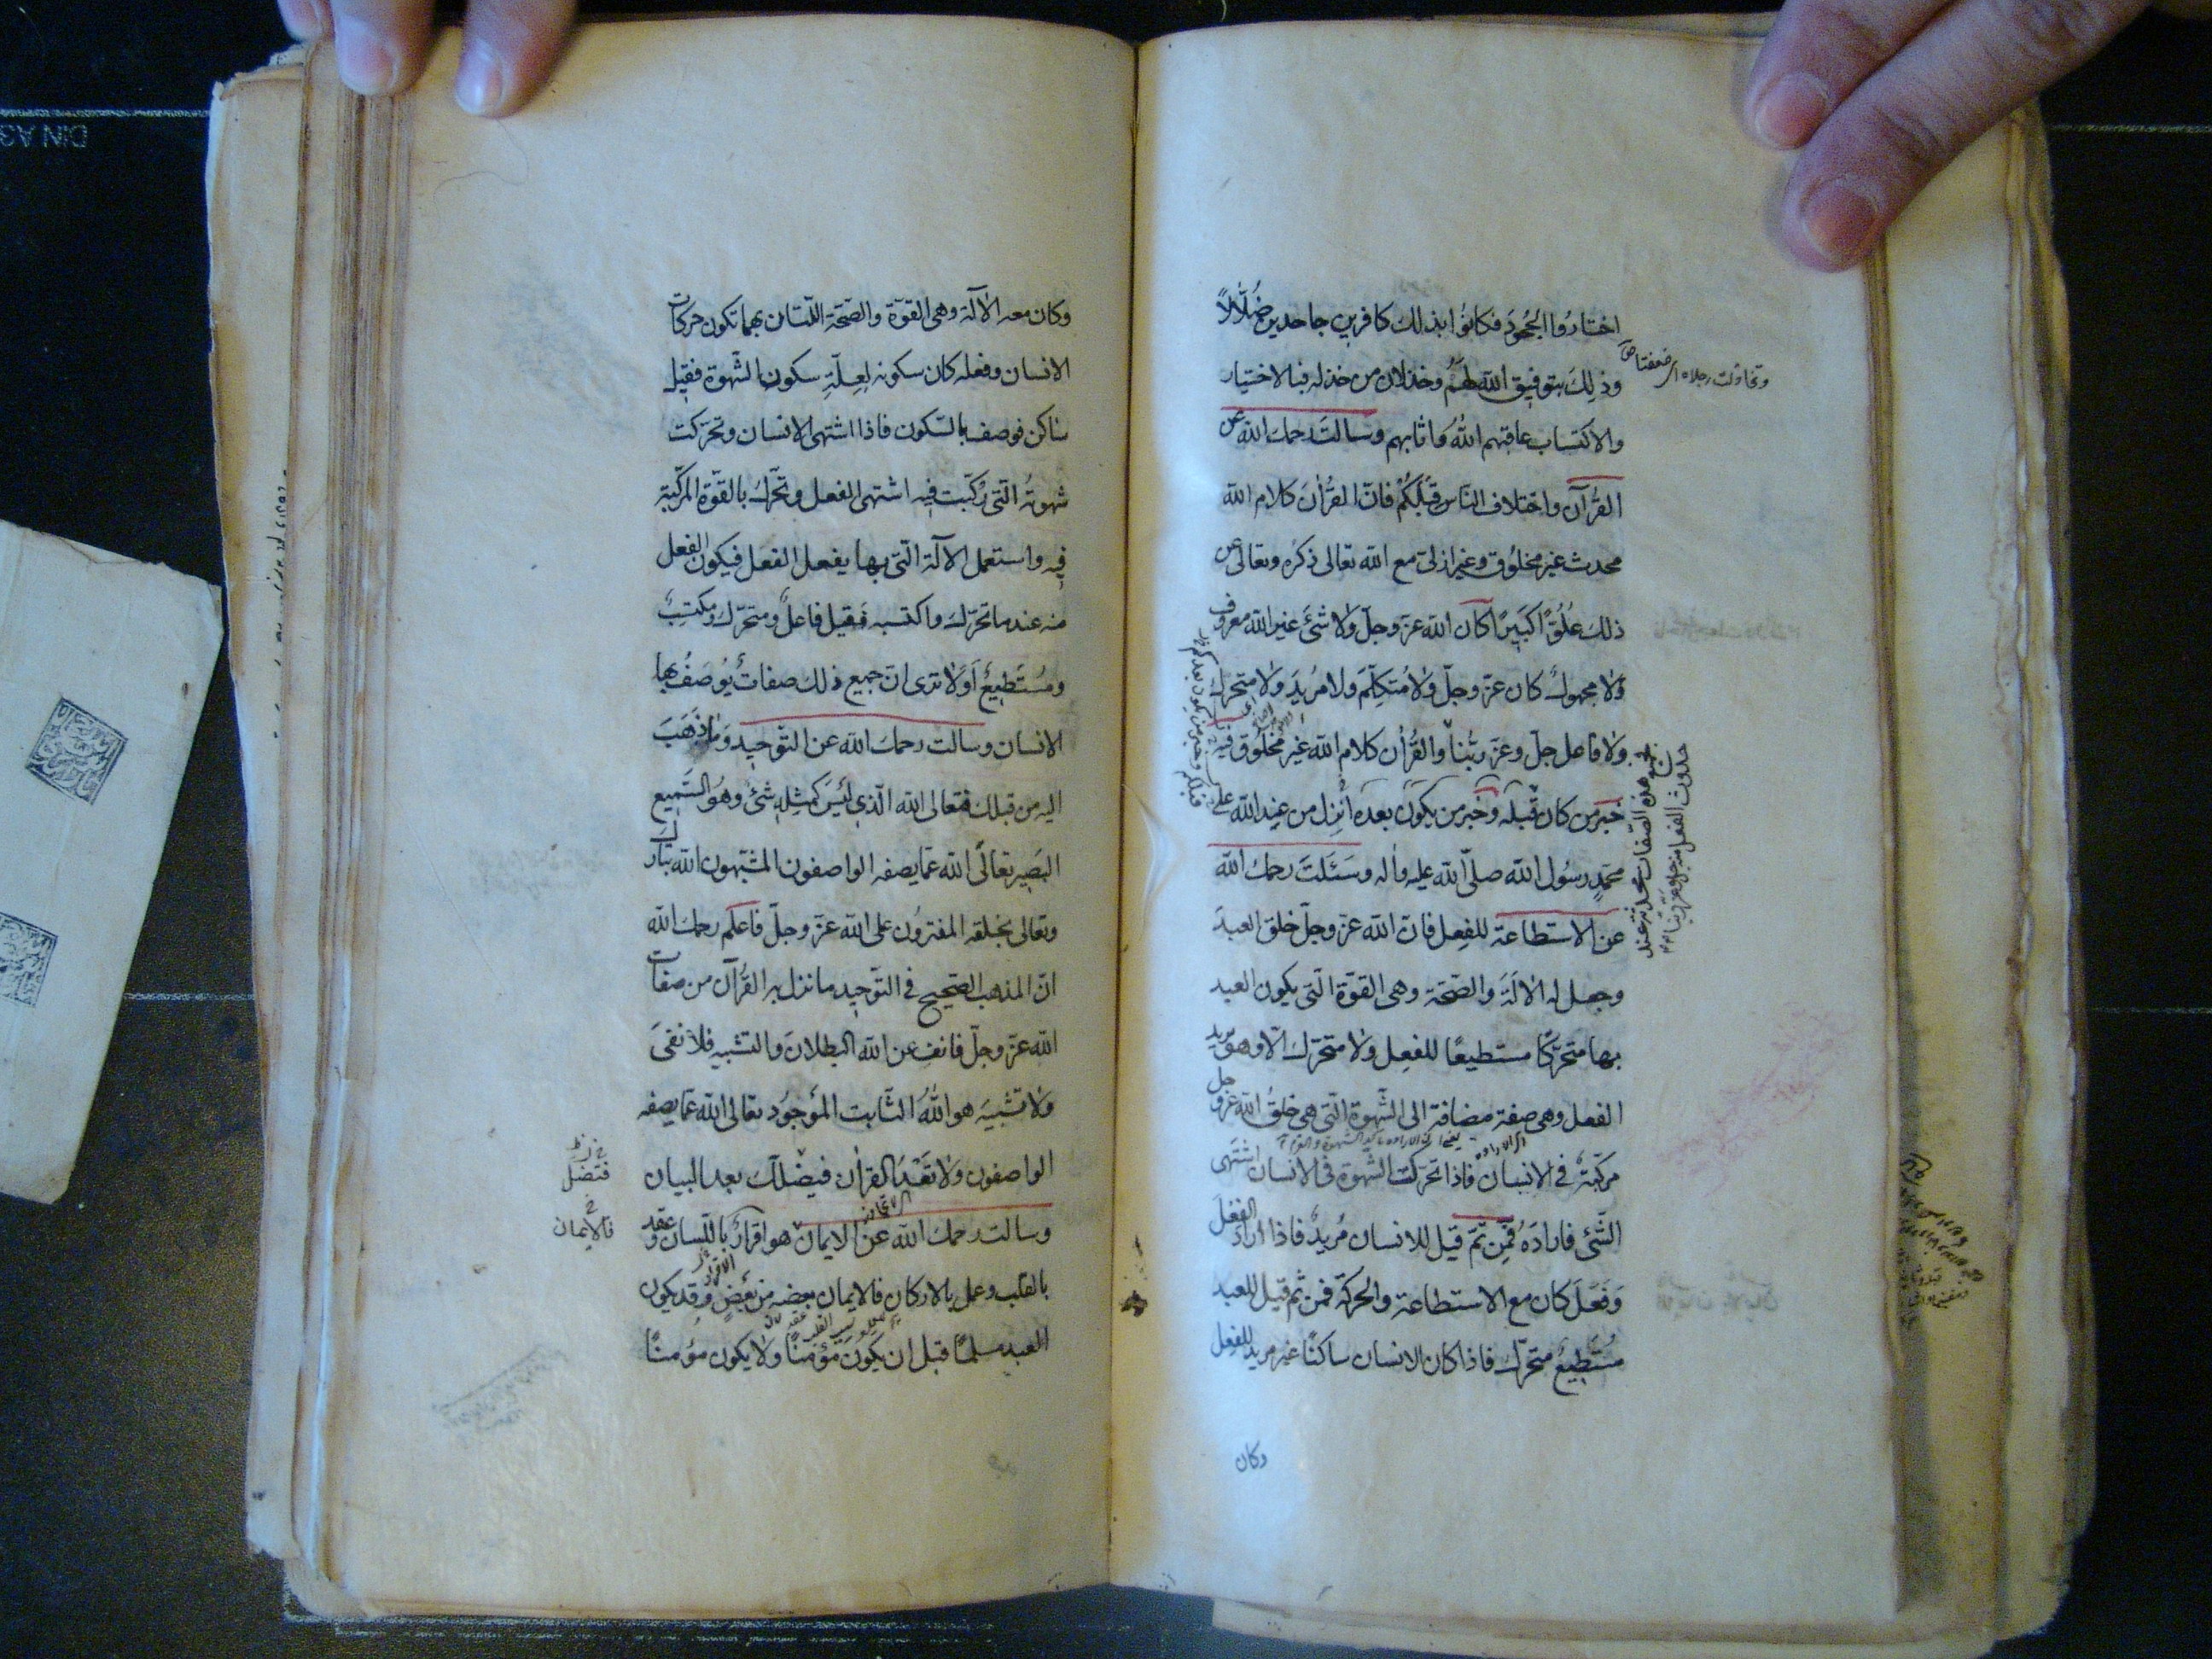 اختارُوا الجُحُودَ فكانُوا بذلك كافرين جاحدين ضُلّالاً
وذلِكَ بتوفيق الله لهُم وخذلان من خذله فبالاختيار
والاكتساب عاقبهم اللهُ واثابهم وسالتَ رحمك الله عن
القُرآن واختلاف الناس قبلَكُم فانّ القُرأن كلام الله
محدث غير مخلُوق وغير ازلىّ مع الله تعالى ذكره وتعالى عن
ذلك عُلُوّاً كَبيرًا كان الله عزّ وجلّ ولا شئَ غير الله معروف
ولا مجهولٌ كان عزّ وجلّ ولا مُتكلّمَ ولا مُريدَ ولا متحرك
ولا فاعل جلّ وعزّ ربُّنا والقُرأن كلام الله غير مخلوق فيه
خبر من كان قبله وخبر من يكون بعده اُنزِل من عند الله على
محمّدٍ رسُول الله صلّى الله عليه واله وسَئَلتَ رحمك الله
عن الاستطاعة للفِعل فانّ الله عزّ وجلّ خلق العبدَ
وجعل له الالَةَ والصّحّة وهى القوّة الّتى يكون العبد
بها متحرّكًا مستطيعًا للفِعل ولا متحرّك الّا وهو يريد
الفعل وهى صفة مضافة الى الشّهوة الّتى هى خلقُ الله عزّ وجل
مركّبةٌ فى الانسان فاذا تحرّكت الشّهوة فى الانسان اشتهى
الشّئ فارادَهُ فمِن ثمّ قيل للانسان مُريدٌ فاذا اراد الفِعْلَ
وَفَعَلَ كان مع الاستطاعة والحركة فمن ثمّ قيل للعبد
مُستطِيعٌ متحرّك فاذا كان الانسان ساكنًا غير مريد للفِعل
وكان
وكان معه الآلة وهى القوّة والصّحّة اللّتان بهما تكون حركات
الانسان وفعله كان سكونه لِعِلّةِ سكون الشّهوة فقيل
ساكن فوصف بالسّكون فاذا اشتهى الانسان وتحرّكت
شهوتهُ الّتى رُكّبت فيه اشتهى الفعل وتحرّك بالقوّة المركّبة
فيه واستعمل الآلة الّتى بها يفعل الفعل فيكون الفعل
منه عندما تحرّك واكتسبه فقيل فاعلٌ ومتحرّك ومكتسِبٌ
ومُستَطِيعٌ اَوَلا ترى انّ جميع ذلك صفاتٌ يُوصَفُ بها
الانسان وسالت رحمك الله عن التّوحيد وَما ذَهَبَ
اليه من قبلك فتعالى الله الّذى لَيسَ كَمِثلِه شئ وهُو السّميع
البَصير تعالى الله عمّا يصفه الواصفون المشبّهون الله تبارك
وتعالى بخلقه المفترُون على الله عزّ وجلّ فاعلَم رحمك الله
انّ المذهب الصّحيح فى التّوحيد ما نزل به القُرآن من صفات
الله عزّ وجلّ فانفِ عن الله البطلان والتشبيه فلا نفىَ
ولا تشبيَه هو اللهُ الثّابت المَوجُود تعالى الله عمّا يصفه
الواصفون ولا تَعْدُ القرأن فيضّلكَ بعد البيان
فتضلّ
وسالت رحمك الله عن الايمان هو اقرارٌ باللّسان وعقد
فالايمان
بالقلب وعمل بالاركان فالايمان بعضه من بَعضٍ وقد يكون
العبد مسلمًا قبل ان يكون مؤمنًا ولا يكون مؤمنًا